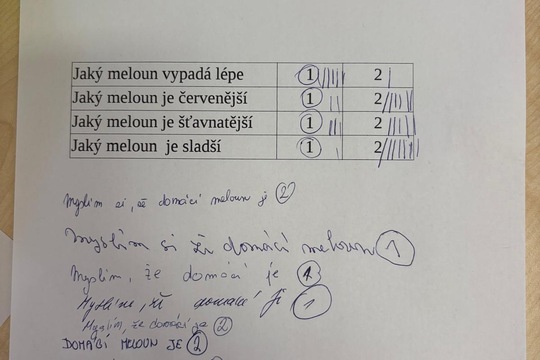 Jaký meloun vypadá lépe 1 2
Jaký meloun je červenější 1 2
Jaký meloun je šťavnatější 1 2
Jaký meloun je sladší 1 2
Myslím si, že domácí meloun je 2
Myslím si že domácí meloun 1
Myslím, že domácí je 1
Myslím, že domácí je 1
Myslím, že domácí je 2
DOMÁCÍ MELOUN JE 2